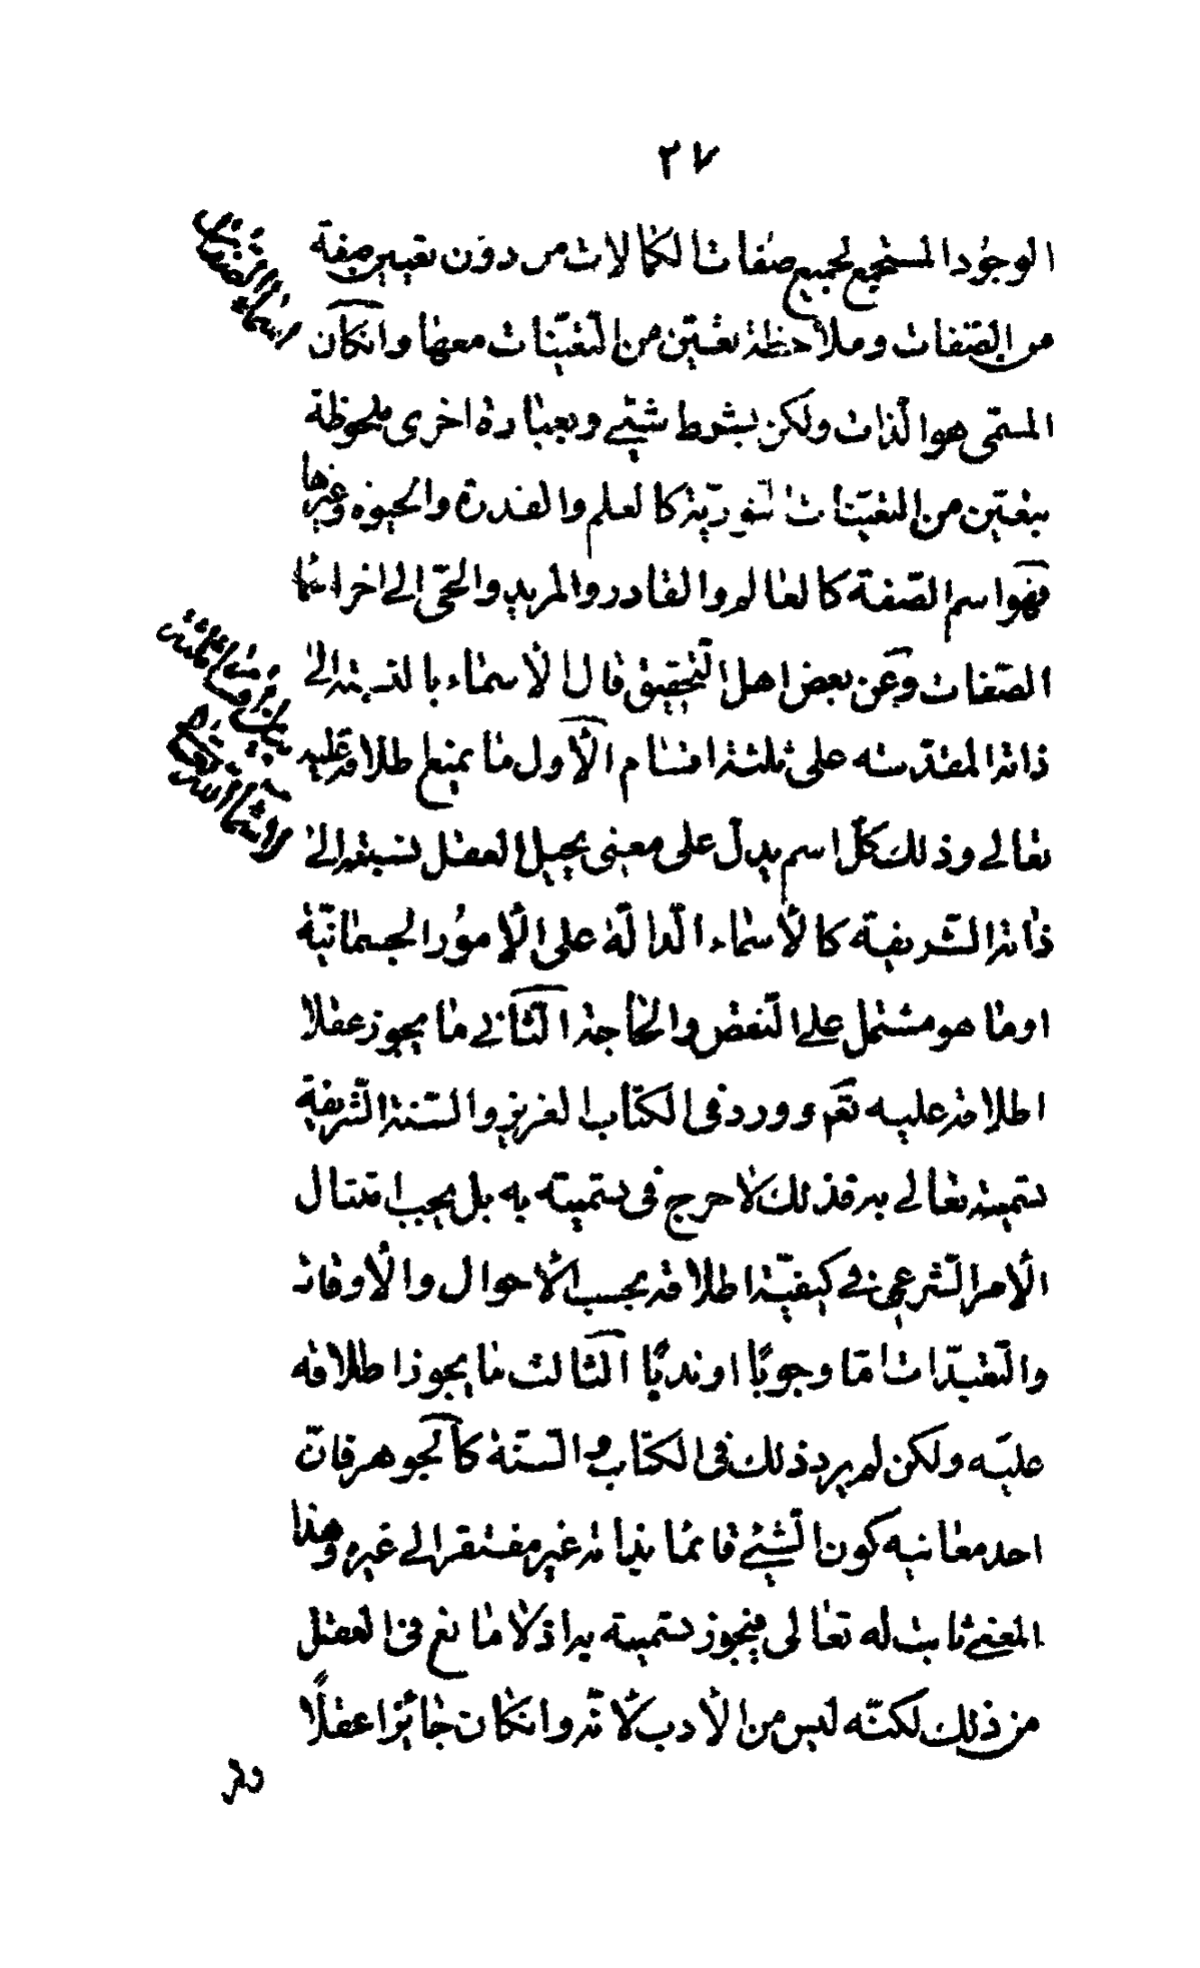 ٢٧
الوجود المستجمع لجميع صفات الكمالات من دون تعيين صفة
من الصّفات وملاحظة تعيّن من التّعيّنات معها وانكان
المسمّى هو الّذات ولكن بشرط شيئ وبعبارة اخرى ملحوظة
بتعيّن من التعيّنات النّوريّة كالعلم والقدرة والحيوة وغيرها
فهو اسم الصّفة كالعالم والقادر والمريد والحىّ الى اخر اسماء
الصّفات وعن بعض اهل التّحقيق قال الأسماء بالنسبة الى
ذاته المقدّسه على ثلثة اقسام الأول ما يمنع اطلاقه عليه
تعالى وذلك كلّ اسم يدلّ على معنى يحيل العقل نسبته الى
ذاته الشّريفة كالأسماء الّدالّة على الأمور الجسمانيّة
او ما هو مشتمل على النّقص والحاجة الثّانى ما يجوز عقلا
اطلاقه عليه تعم وورد فى الكتاب العزيز والسّنة الشّريفة
تسميته تعالى به فذلك لا حرج فى تسميته به بل يجب امتثال
الأمر الشّرعى فى كيفيّة اطلاقه بحسب الأحوال والأوقات
والتّقيّدات امّا وجوبًا او ندبًا الثالث ما يجوز اطلاقه
عليه ولكن لم يرد ذلك فى الكتاب والسّنة كالجوهر فانّ
احد معانيه كون الشّيئ قائما بذاته غير مفتقر الى غيره وهذا
المعنى ثابت له تعالى فيجوز تسميته به اذ لا مانع فى العقل
من ذلك لكنّه ليس من الأدب لأنّه وانكان جائزا عقلًا
اسماء الصفات
بيان
الاسماء الله